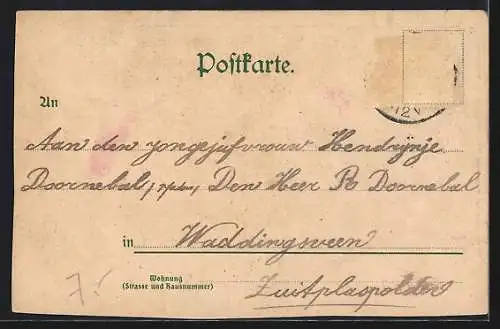 Postkarte.
12V
An
Aan den yongejufvrouw Hendrijnje
Doornebal, Den Heer P. Doornebal
in Waddingsveen
Wohnung
(Strasse und Hausnummer)
Zuitplaspolder
7.-